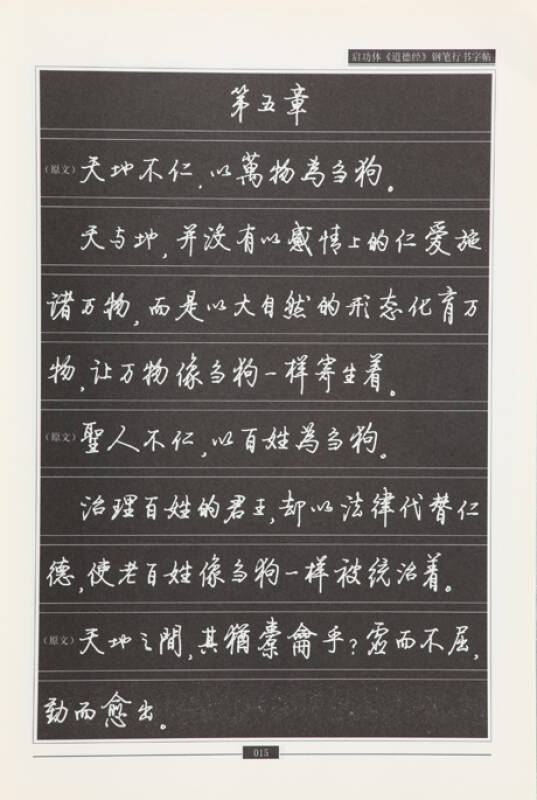 启功体《道德经》钢笔行书字帖
第五章
(原文) 天地不仁,以萬物為刍狗。
天与地,并没有以感情上的仁爱施
诸万物,而是以大自然的形态化育万
物,让万物像刍狗一样寄生着。
(原文) 聖人不仁,以百姓為刍狗。
治理百姓的君王,却以法律代替仁
德,使老百姓像刍狗一样被统治着。
(原文) 天地之間,其猶橐籥乎?虚而不屈,
動而愈出。
015